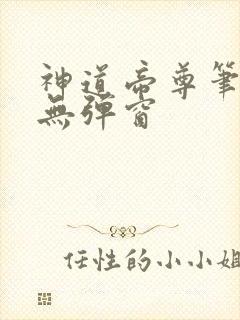 神道帝尊筆
無彈窗
任性的小小姐